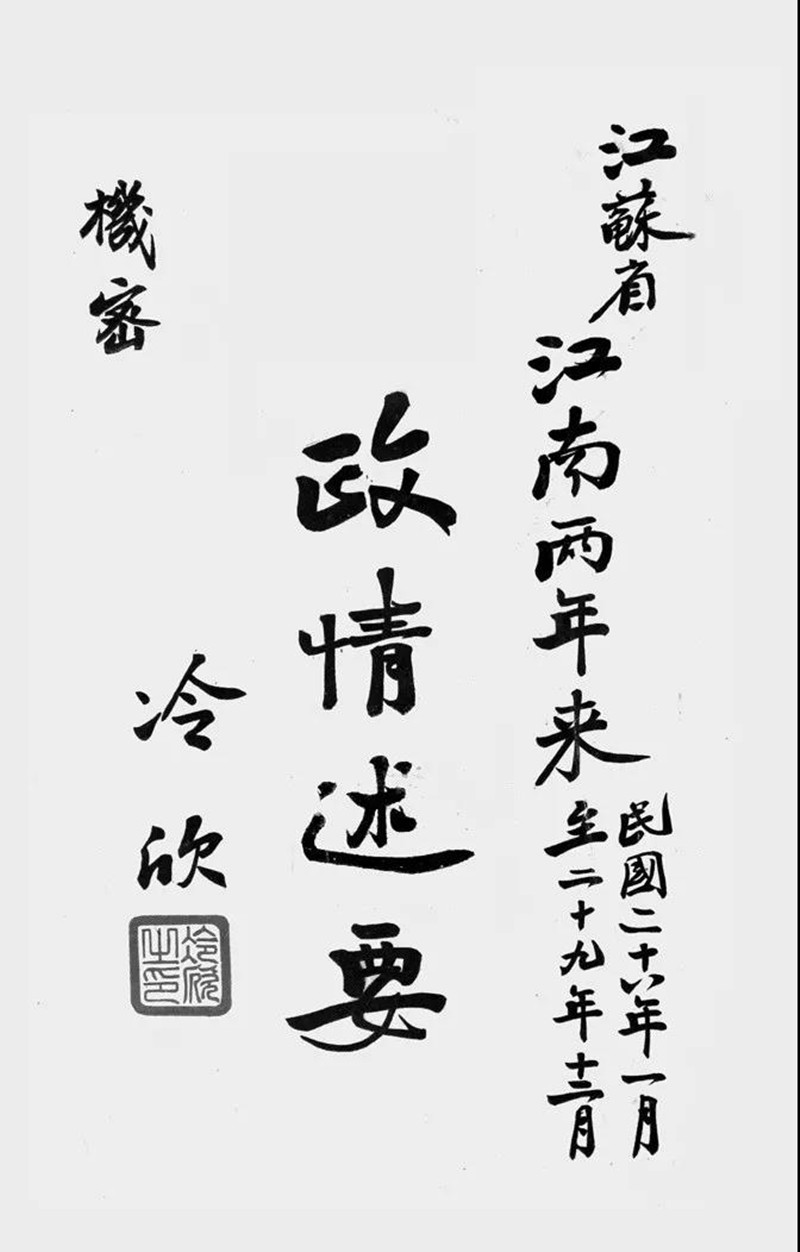 江蘇省江南两年来
民國二十八年一月
至二十九年十二月
政情述要
冷欣
冷欣之印
機密